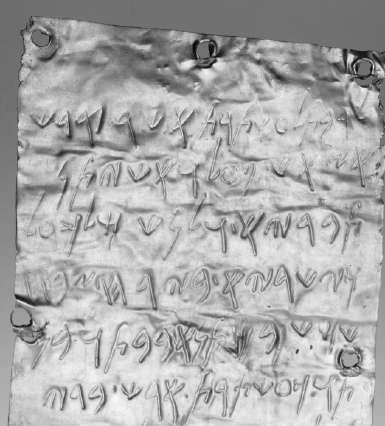 𐤋𐤓𐤁𐤕 𐤋𐤏𐤔𐤕𐤓𐤕 𐤀𐤔𐤓 𐤒𐤃𐤔
𐤀𐤆 𐤀𐤔 𐤐𐤏𐤋 𐤅𐤀𐤔 𐤉𐤕𐤍
𐤕𐤁𐤓𐤉𐤀 𐤅𐤋𐤍𐤔 𐤌𐤋𐤊 𐤏𐤋
𐤊𐤉𐤔𐤓𐤉𐤀 𐤁𐤉𐤓𐤇 𐤆𐤁𐤇
𐤔𐤌𐤔 𐤁𐤌𐤕𐤍 𐤀𐤁𐤁𐤕 𐤅𐤁𐤍
𐤕𐤅 𐤊 𐤏𐤔𐤕𐤓𐤕 𐤀𐤓𐤔 𐤁𐤃𐤉